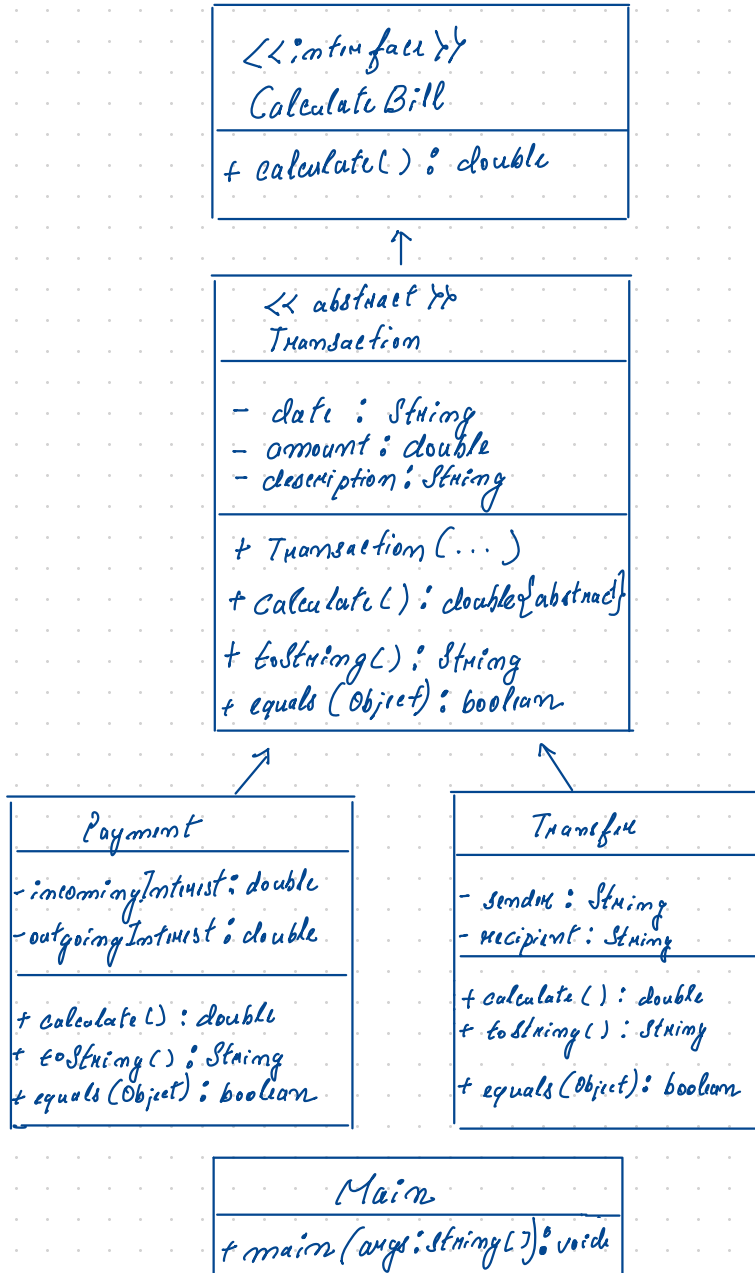 <<interface>>
CalculateBill
+ calculate() : double
<< abstract >>
Transaction
- date : String
- amount : double
- description : String
+ Transaction (...)
+ calculate() : double{abstract}
+ toString() : String
+ equals (Object) : boolean
Payment
- incomingInterest : double
- outgoingInterest : double
+ calculate() : double
+ toString() : String
+ equals (Object) : boolean
Transfer
- sender : String
- recipient : String
+ calculate() : double
+ toString() : String
+ equals (Object) : boolean
Main
+ main (args : String[]) : void